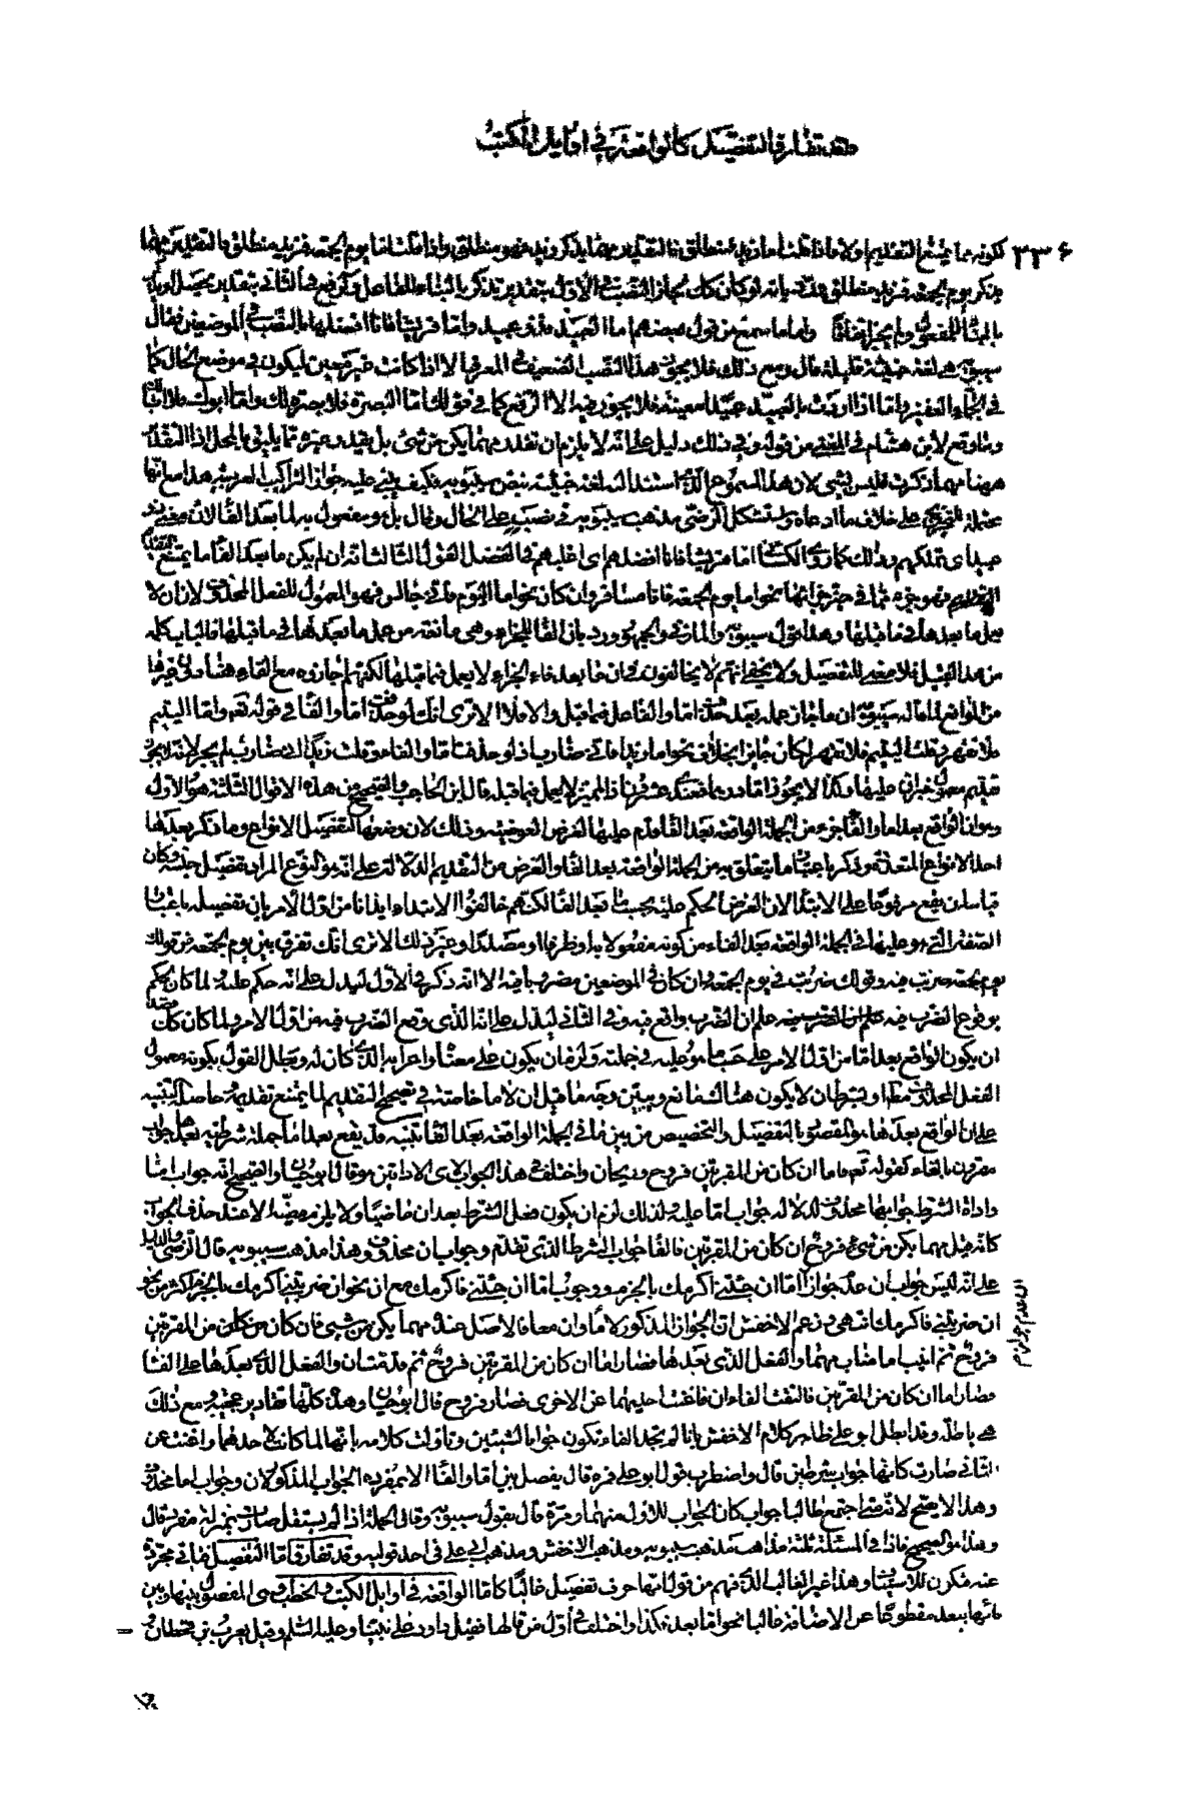 وقد تفارق التفصيل كالواقعة في اوايل الكتب
٣٣۶
لكونه مما يمتنع التقديم اولا فاذا قلت اما زيد فمنطلق فالتقدير مهما يذكر زيد فهو منطلق واذا قلت اما يوم الجمعة فزيد منطلق فالتقدير مهما
يذكر يوم الجمعة فزيد منطلق بانه لو كان كك لجاز النصب في الأول بتقدير تذكر بالبناء للفاعل والرفع في الثاني بتقدير
بالبناء للمفعول ولم يجز اتفاقا واما ما سمع من قول بعضهم اما العبيد فذو عبيد واما قريشا فانا افضلها بالنصب في الموضعين فقال
سيبويه هي لغة خبيثة قليلة قال ومع ذلك فلا يجوز هذا النصب الضعيف في المعرف الا اذا كانت غير معين ليكون في موضع الحال كما
في الجماء الغفير واما اذا اردت بالعبيد عبيدا معينة فلا يجوز فيه الا الرفع كما في قولك اما البصرة فلا بصرة لك واما ابوك فلا ابا لك
وما وقع لابن هشام في المغني من قوله وفي ذلك دليل على انه لا يلزم ان تقدر مهما يكن من شئ بل يقدر غيره مما يليق بالمحل اذ التقدير
ههنا مهما ذكرت فليس بشئ لان هذا المسموع الذي استند اليه لغة خبيثة بنص سيبويه فكيف يبنى عليه جواز التراكيب العربية هذا مع انها
محتملة للتخريج على خلاف ما ادعاه واستشكل الرضي مذهب سيبويه في نصب على الحال وقال بل هو مفعول به لما بعد الفا لان معنى ذو
عبيد اى يملكهم وذلك كما روى الكسائي اما قريشا فانا افضلهم اى اغلبهم في الفضل القول الثالث انه ان لم يكن ما بعد الفا ما يمتنع
التقديم فهو جزء مما في حيزها نحو اما يوم الجمعة فانا مسافر وان كان نحو اما اليوم فاني جالس فهو المعمول للفعل المحذوف لان ان لا
يعمل ما بعدها في ما قبلها وهذا قول سيبويه والمازني والجمهور ورد بان الفا للجزاء وهي مانعة من عمل ما بعدها في ما قبلها فالباب كله
من هذا القبيل فلا معنى للتفصيل ولا يخفى انهم لا يخالفون في ان ما بعد فاء الجزاء لا يعمل فيما قبلها لكنهم اجازوه مع الفاء هنا دون غيرها
من الموانع لما قاله سيبويه ان ما جاز عمله بعد حذف اما والفا عمل فيما قبل والا فلا الا ترى انك لو حذفت اما والفا في قوله تع واما اليتيم
فلا تقهر وقلت اليتيم فلا تقهر لكان جايزا بخلاف نحو اما زيدا فاني ضارب اذ لو حذفت اما والفا وقلت زيدا اني ضارب لم يجز لانه لا يجوز
تقديم معمول خبر ان عليها وكذا لا يجوز اما درهما فعندك عشرون اذ المميز لا يعمل فيما قبله قال ابن الحاجب والصحيح من هذه الاقوال الثلثة هو الأول
وهو ان الواقع بعد اما والفا جزء من الجملة الواقعة بعد الفا قدم عليها لغرض العوضية وذلك لان وضعها لتفصيل الانواع وما ذكر بعدها
احد الانواع المتعددة وذكر باعتبار ما يتعلق به من الجملة الواقعة بعد الفا والغرض من التقديم الدلالة على انه هو النوع المراد تفصيل جنسه وكان
قياسه ان يقع مرفوعا على الابتدا لان الغرض الحكم عليه بحسب ما بعد الفا لكنهم خالفوا الابتداء ايذانا من اول الأمر بان تفصيله باعتبار
الصفة التي هو عليها في الجملة الواقعة بعد الفاء من كونه مفعولا به او ظرفا او مصدرا وغير ذلك الا ترى انك تفرق بين يوم الجمعة في قولك
يوم الجمعة ضربت فيه وقولك ضربت في يوم الجمعة وان كان في الموضعين مضروبا فيه الا انه ذكر في الأول ليدل على انه حكم عليه لما كان الحكم
بوقوع الضرب فيه علم ان الضرب واقع فيه وفي الثاني ليدل على انه الذي وقع الضرب فيه من اول الامر ولما كان كك
ان يكون الواقع بعد اما من اول الامر على حسب ما هو عليه في جملته ولزم ان يكون على معناه واعرابه الذي كان له وبطل القول بكونه معمول
الفعل المحذوف مطلقا او بشرط ان لا يكون هناك مانع ويبين وجه ما قيل ان لاما خاصة في تصحيح التقديم لما يمتنع تقديمه حاصله التنبيه
على ان الواقع بعدها هو المقصود بالتفصيل والتخصيص من بين ما في الجملة الواقعة بعد الفا تنبيه قد يقع بعد اما جملة شرطية بعدها جواب
مقرون بالفاء كقوله تعه فاما ان كان من المقربين فروح وريحان واختلف في هذا الجواب لاى الاداتين هو قال ابوحيان والصحيح انه جواب اما
واداة الشرط جوابها محذوف لدلالة جواب اما عليه ولذلك لزم ان يكون فعل الشرط بعد ان ماضيا ولا يلزم مضيه الا عند حذف الجواب
كانه قيل مهما يكن من شئ فروح ان كان من المقربين فالفا جواب الشرط الذي تقدم وجواب ان محذوف وهذا مذهب سيبويه قال الرضي والدليل
على انه ليس جواب ان عدم جواز اما ان جئتني اكرمك بالجزم ووجوب اما ان جئتني فاكرمك مع ان نحو ان ضربتني اكرمك بالجزم اكثر من نحو
ان ضربتني فاكرمك انتهى وزعم الاخفش ان الجواز المذكور لأما وان معا فالاصل عنده مهما يكن من شئ فان كان من المقربين
فروح ثم انيب اما مناب مهما والفعل الذي بعدها فصار اما ان كان من المقربين فروح ثم قدمت ان والفعل الذي بعدها على الفا
فصار اما ان كان من المقربين فالتقت الفاءان فاغنت احديهما عن الاخرى فصار فروح قال ابوحيان وهذه كلها تقادير عجيبة ومع ذلك
هي باطلة وقد ابطل ابو على ظاهر كلام الاخفش بانا لم نجد الفاء تكون جوابا لشيئين وتأولت كلامه بانها لما كانت لاحدهما واغنت عن
الثاني صارت كانها جواب شرطين قال واضطرب قول ابو على فمرة قال يفصل بين اما والفا الا بمفرد فالجواب المذكور لان وجواب اما محذوف
وهذا لا يصح لانه متى اجتمع طالبا جواب كان الجواب للاول منهما ومرة قال بقول سيبويه وقال الجملة اذا لم يستقل صارت بمنزلة مفرد قال
وهذا هو الصحيح فاذا في المسئلة ثلثة مذاهب مذهب سيبويه ومذهب الاخفش ومذهب ابي على في احد قوليه وقد تفارق اما التفصيل فيما في مجردة
عنه فتكون للاستيناف وهذا غير الغالب الذي فهم من قولنا انها حرف تفصيل غالبا كاما الواقعة في اوايل الكتب والخطب وهي المفصول بينها وبين
فائها ببعد مقطوعا عن الاضافة غالبا نحو اما بعد فكذا واختلف في أول من قالها فقيل داود على نبينا وعليه السلام وقيل يعرب بن قحطان